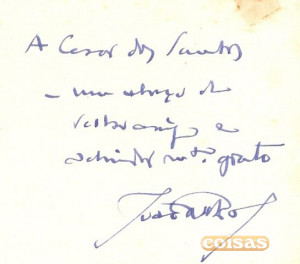 A Cesar dos Santos
– um abraço do
velho amigo e
admirador mt.º grato
coisas